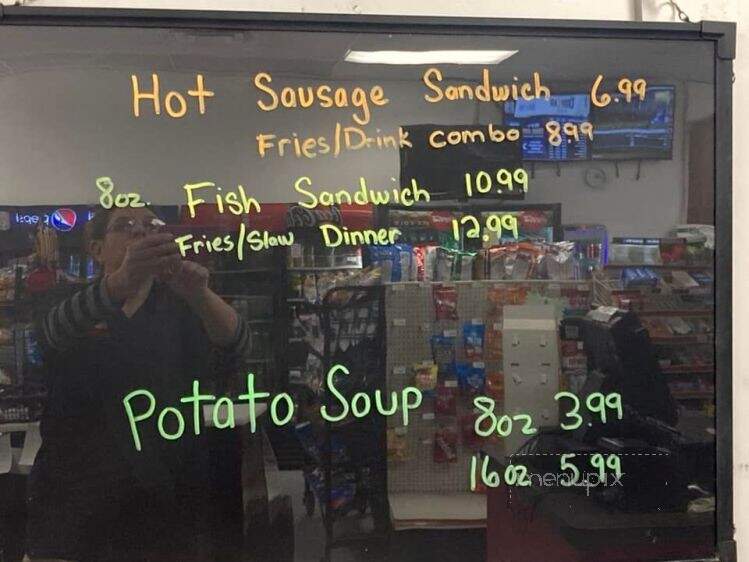 Hot Sausage Sandwich 6.99
Fries/Drink combo 8.99
8oz. Fish Sandwich 10.99
Fries/Slaw Dinner 12.99
Potato Soup 8oz 3.99
16oz 5.99
menupix